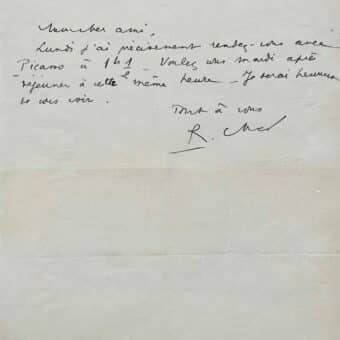 Mon cher ami,
Lundi j'ai précisément rendez-vous avec
Picasso à 1h1 – Voulez vous mardi après
déjeuner à cette même heure – Je serai heureux
de vous voir.
Tout à vous
R.